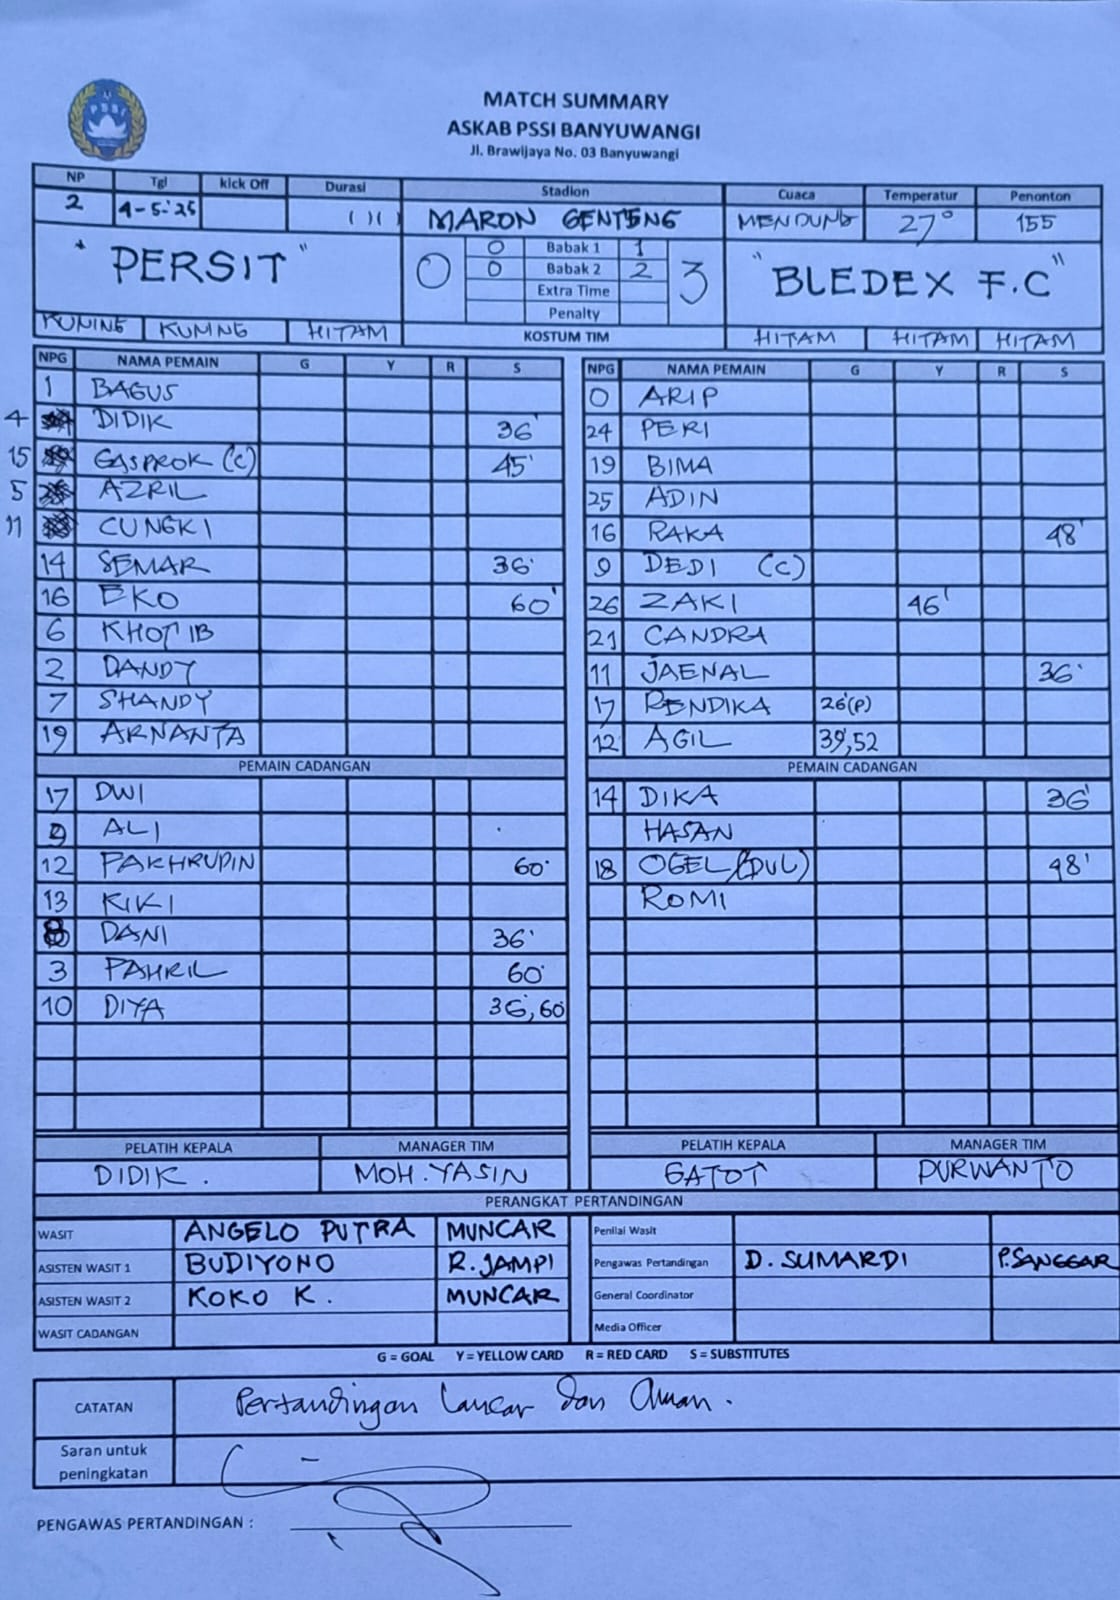 PSSI
MATCH SUMMARY
ASKAB PSSI BANYUWANGI
Jl. Brawijaya No. 03 Banyuwangi
NP Tgl kick Off Durasi Stadion Cuaca Temperatur Penonton
2 4-5-'25 ( )( ) MARON GENTENG MENDUNG 27° 155
"PERSIT" 0 0 Babak 1 1 3 "BLEDEX F.C"
0 Babak 2 2
Extra Time
Penalty
KUNING KUNING HITAM KOSTUM TIM HITAM HITAM HITAM
NPG NAMA PEMAIN G Y R S
1 BAGUS
4 DIDIK 36'
15 GASPROK (C) 45'
5 AZRIL
11 CUNGKI
14 SEMAR 36'
16 EKO 60'
6 KHOTIB
2 DANDY
7 SHANDY
19 ARNANTA
PEMAIN CADANGAN
17 DWI
9 ALI
12 FAKHRUDIN 60'
13 KIKI
8 DANI 36'
3 FAHRIL 60'
10 DIYA 36, 60
NPG NAMA PEMAIN G Y R S
0 ARIP
24 PERI
19 BIMA
25 ADIN
16 RAKA 48'
9 DEDI (C)
26 ZAKI 46'
21 CANDRA
11 JAENAL 36'
17 RENDIKA 26'(P)
12 AGIL 39', 52
PEMAIN CADANGAN
14 DIKA 36'
HASAN
18 OGEL/(DUL) 48'
ROMI
PELATIH KEPALA MANAGER TIM PELATIH KEPALA MANAGER TIM
DIDIK. MOH. YASIN GATOT PURWANTO
PERANGKAT PERTANDINGAN
WASIT ANGELO PUTRA MUNCAR Penilai Wasit
ASISTEN WASIT 1 BUDIYONO R. JAMPI Pengawas Pertandingan D. SUMARDI P. SANGGAR
ASISTEN WASIT 2 KOKO K. MUNCAR General Coordinator
WASIT CADANGAN Media Officer
G = GOAL Y = YELLOW CARD R = RED CARD S = SUBSTITUTES
CATATAN Pertandingan Lancar dan Aman.
Saran untuk
peningkatan
PENGAWAS PERTANDINGAN :